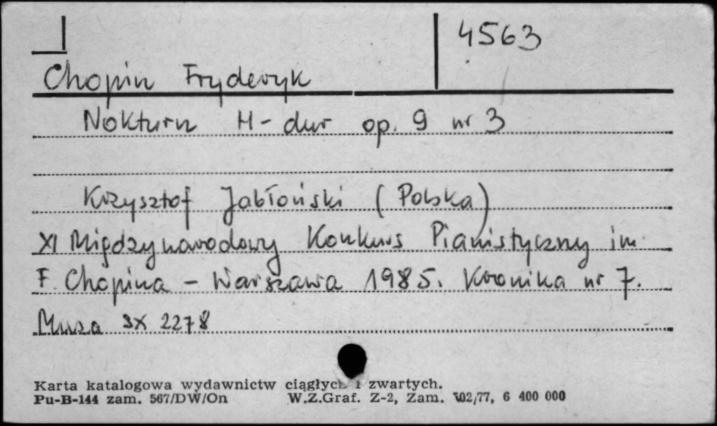 4563
Chopin Fryderyk
Nokturn H-dur op. 9 nr 3
Krzysztof Jabłoński (Polska)
XI Międzynarodowy Konkurs Pianistyczny im.
F. Chopina – Warszawa 1985. Kronika nr 7.
Muza SX 2278
Karta katalogowa wydawnictw ciągłych i zwartych.
Pu-B-144 zam. 567/DW/On W.Z.Graf. Z-2, Zam. 102/77, 6 400 000